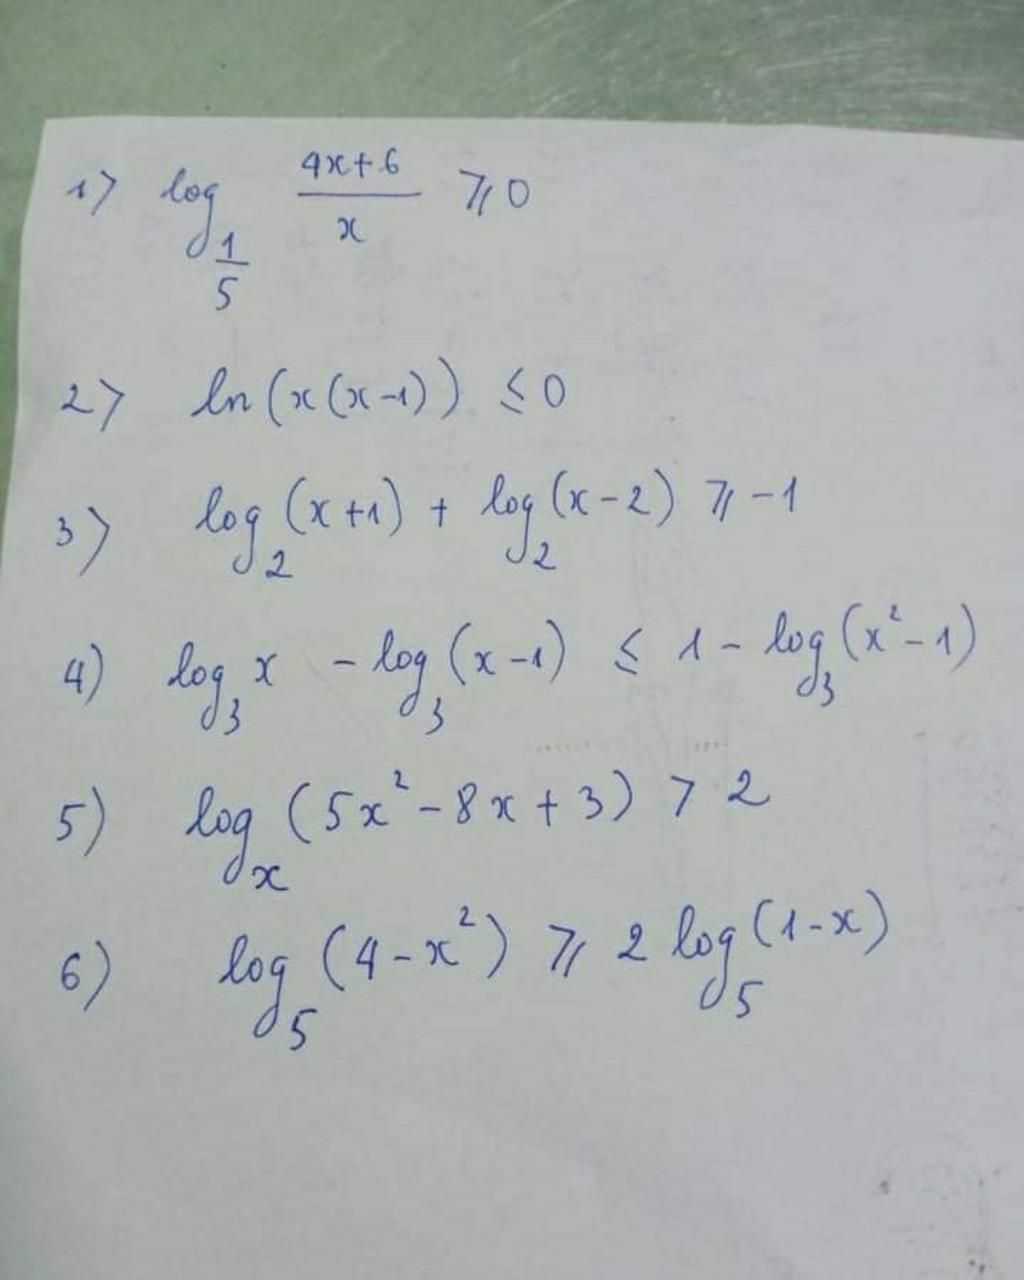 1) log_{1/5} (4x+6)/x ⩾ 0
2) ln(x(x-1)) ≤ 0
3) log_2 (x+1) + log_2 (x-2) ⩾ -1
4) log_3 x - log_3 (x-1) ≤ 1 - log_3 (x²-1)
5) log_x (5x²-8x+3) > 2
6) log_5 (4-x²) ⩾ 2 log_5 (1-x)